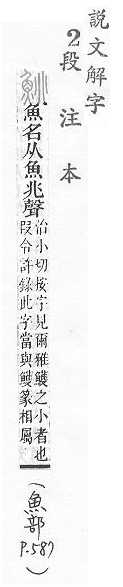 說文解字
2段注本
鮡
魚名从魚兆聲
治小切按字見爾雅鱯之小者也
叚令許錄此字當與鱯篆相屬
(魚部 P.587)